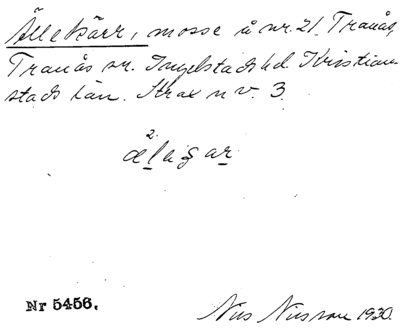 Ällekärr, mosse å nr. 21. Tranås,
Tranås sn. Ingelstads hd. Kristian-
stads län. Strax n v. 3.
2.
Nr 5456.
Nils Nilsson 1930.